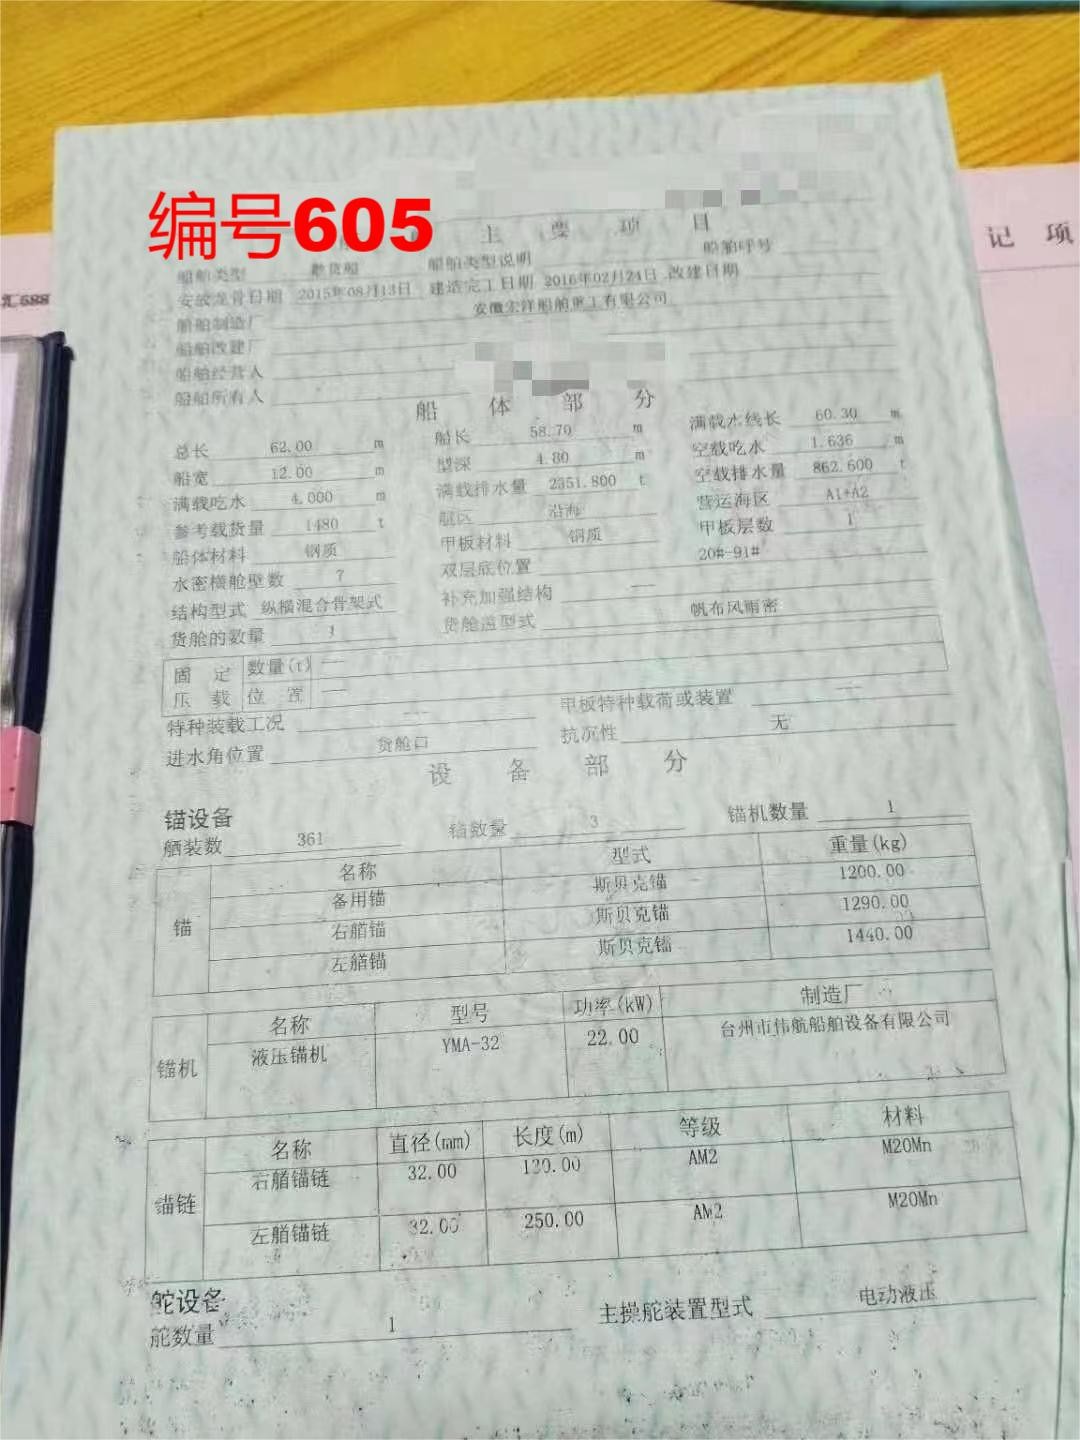 编号605
主要项目
记 项
汇688
船舶类型 散货船 船舶类型说明 船舶呼号
安放龙骨日期 2015年08月13日 建造完工日期 2016年02月24日 改建日期
船舶制造厂 安徽宏洋船舶重工有限公司
船舶改建厂
船舶经营人
船舶所有人
船 体 部 分
总长 62.00 m 船长 58.70 m 满载水线长 60.30 m
船宽 12.00 m 型深 4.80 m 空载吃水 1.636 m
满载吃水 4.000 m 满载排水量 2351.800 t 空载排水量 862.600 t
参考载货量 1480 t 航区 沿海 营运海区 A1+A2
船体材料 钢质 甲板材料 钢质 甲板层数 1
水密横舱壁数 7 双层底位置 20#-91#
结构型式 纵横混合骨架式 补充加强结构 —
货舱的数量 1 货舱盖型式 帆布风雨密
固 定 数量(t) —
压 载 位 置 —
特种装载工况 — 甲板特种载荷或装置 —
进水角位置 货舱口 抗沉性 无
设 备 部 分
锚设备
舾装数 361 锚数量 3 锚机数量 1
锚 名称 型式 重量(kg)
备用锚 斯贝克锚 1200.00
右艏锚 斯贝克锚 1290.00
左艏锚 斯贝克锚 1440.00
锚机 名称 型号 功率(kW) 制造厂
液压锚机 YMA-32 22.00 台州市伟航船舶设备有限公司
锚链 名称 直径(mm) 长度(m) 等级 材料
右艏锚链 32.00 AM2 M20Mn
左艏锚链 32.00 250.00 AM2 M20Mn
舵设备
舵数量 1 主操舵装置型式 电动液压